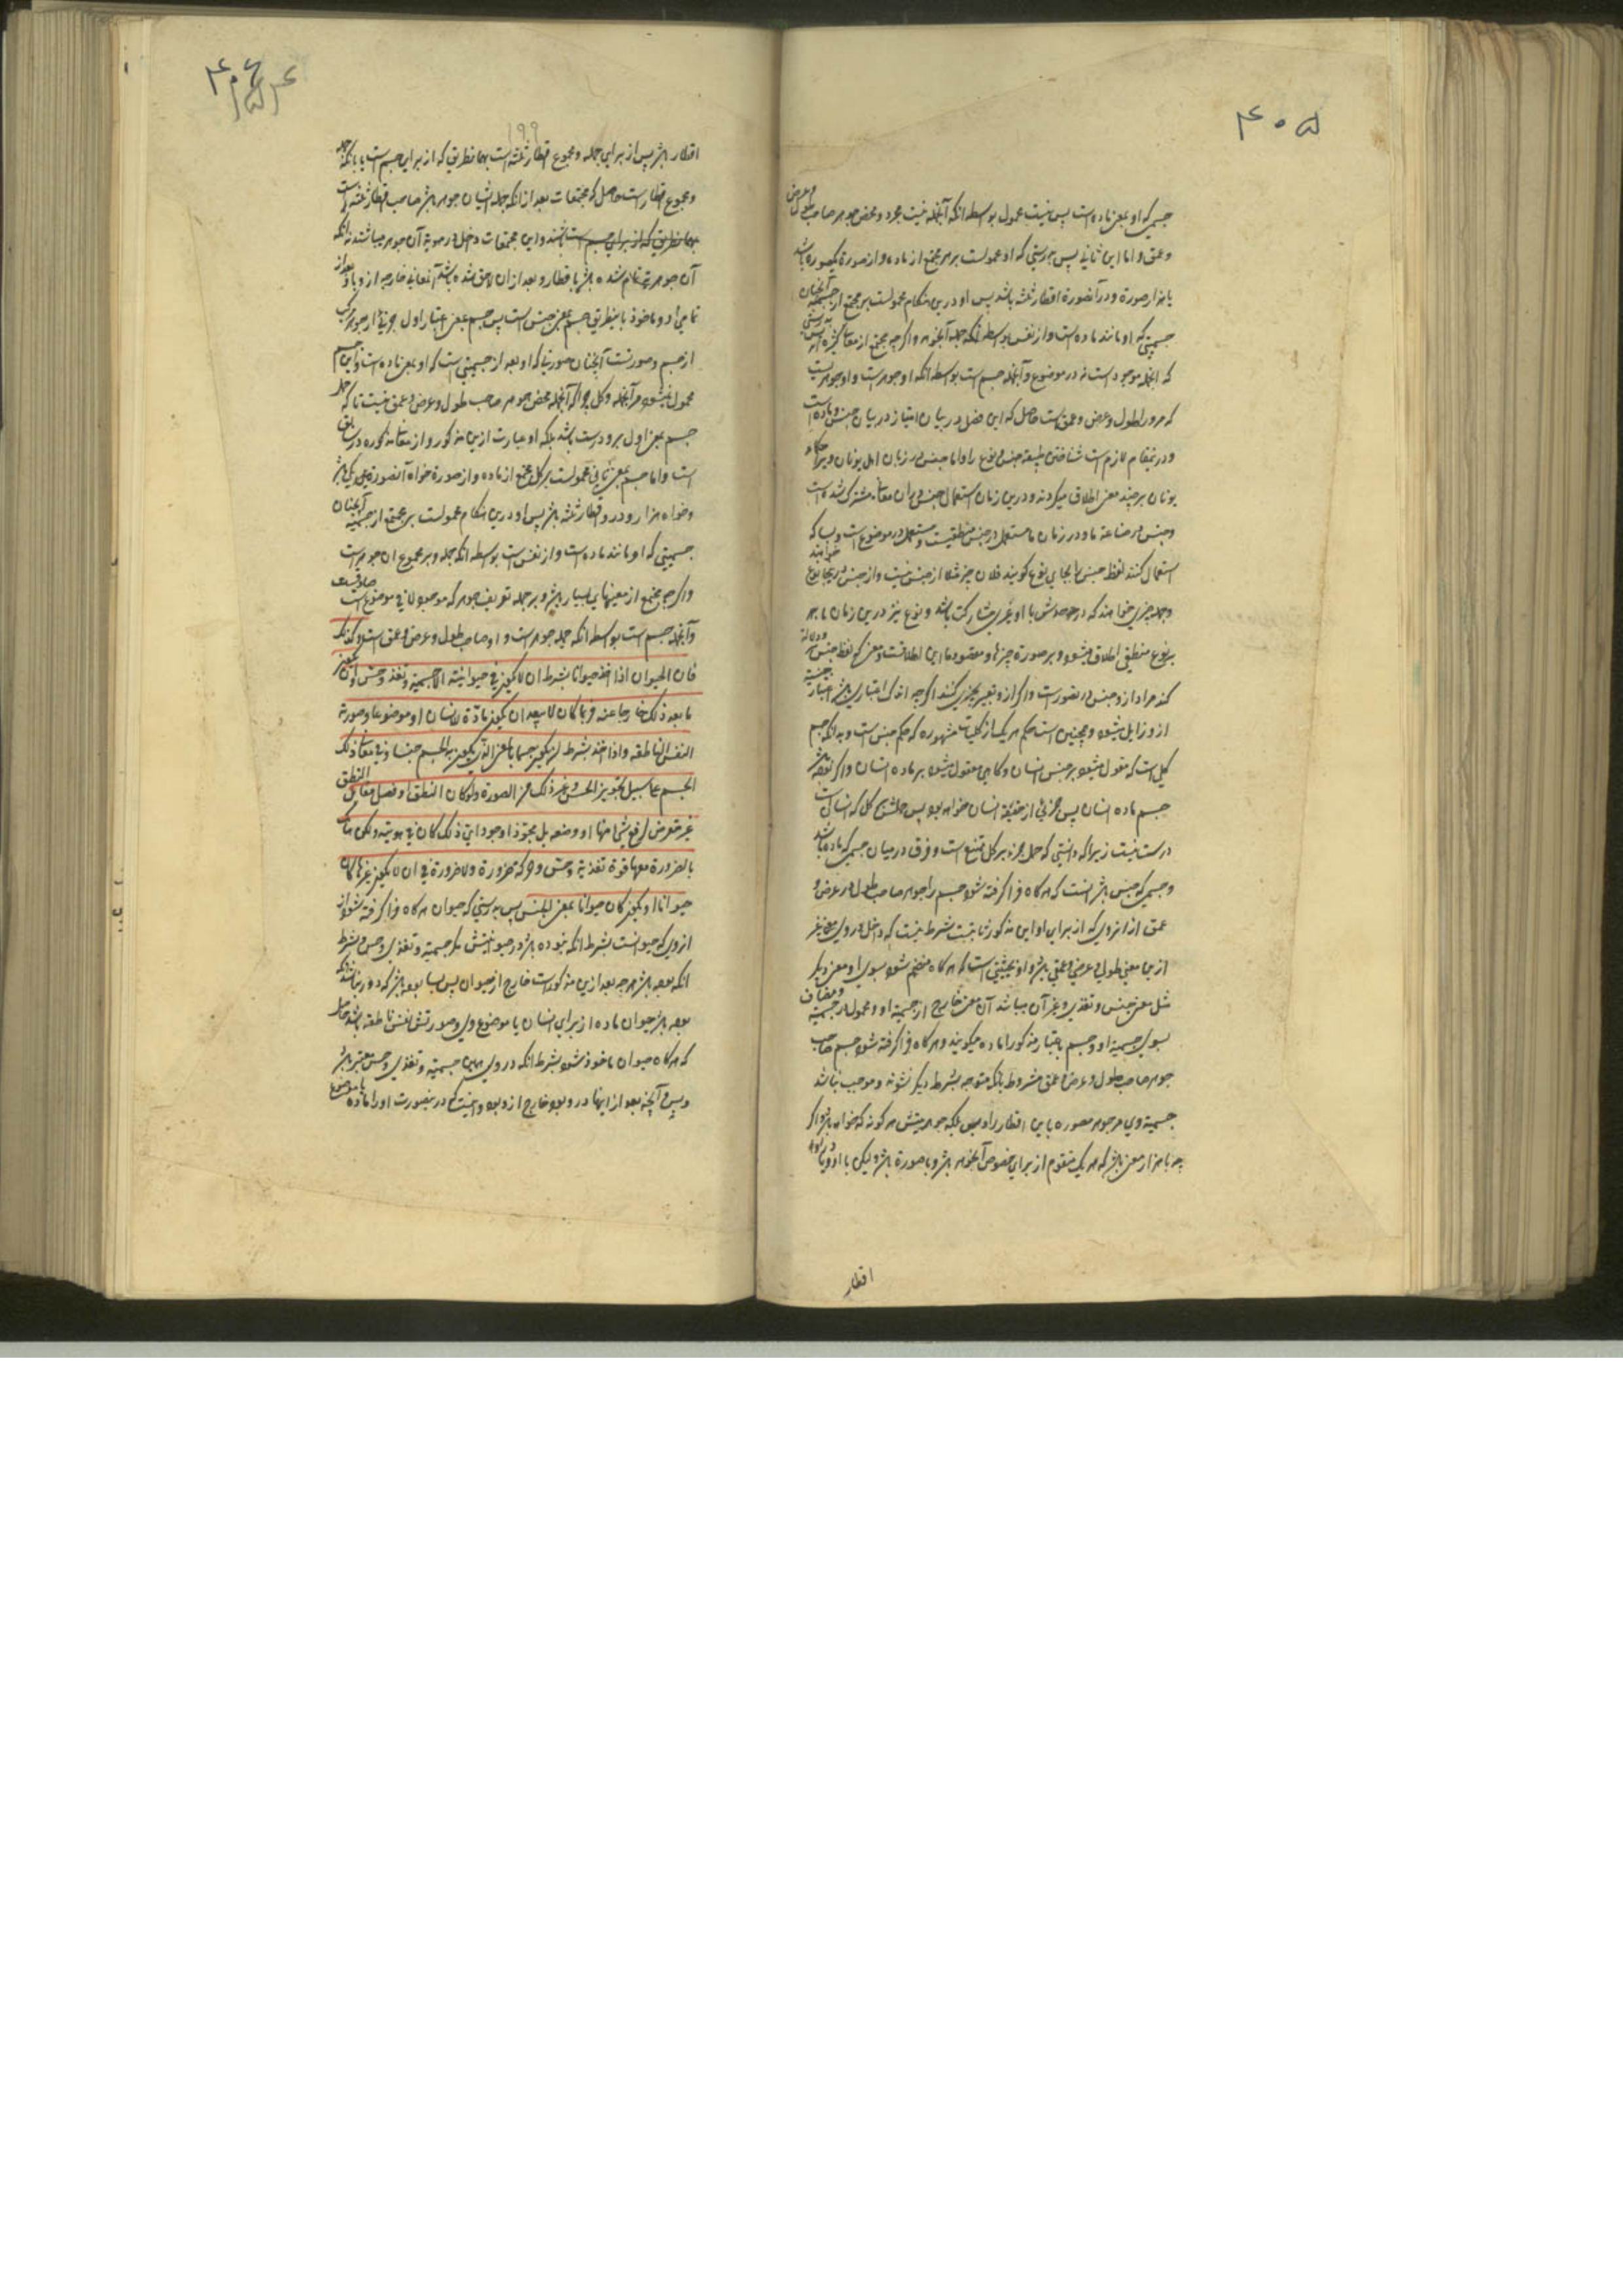 ۴۰۵
جسمی که او بمعنی ماده است پس نیست محمول بواسطه انکه آنجمله نیست مجرد و محض جوهر صاحب طول و عرض
و عمق و اما این ثانی پس بدرستی که او محمولست بر هر مجتمع از ماده و از صورة یکصورة باشد
یا هزار صورة و در آنصورة اقطار ثلثه باشد پس او درین هنکام محمولست بر مجتمع از جسمیة آنچنان
جسمیتی که او مانند ماده است و از نفس بواسطه انکه جمله آنجوهر و اکرچه مجتمع از معانی کثیره است پس بدرستی
که انجمله موجود است نه در موضوع و آنجمله جسم است بواسطه انکه او جوهر است و او جوهریست
که مر او را طول و عرض و عمق است حاصل که این فصل در بیان امتیاز در میان جنس و ماده است
و درینمقام لازم است شناختن طبیعة جنس و نوع را و اما جنس در زبان اهل یونان و حکماء
یونان بر چند معنی اطلاق میکردند و درین زمان استعمال جنس بر آن معانی مشترک شده است
و جنس در صناعة ما و در زمان ما مستعمل در جنس منطقیست و مستعمل در موضوع است و بسا که
استعمال کنند لفظ جنس را بجای نوع کویند فلان چیز مثلا از جنس نیست و از جنس اینجا نوع خواهند
و نوع نیز درین زمان ما بر
بر نوع منطقی اطلاق میشود و بر صورة چیزها و مقصود ما این اطلاقست و معنی که لفظ جنس دلالة
کند مراد از و جنس در تصورست و اکر از و تعبیر بچیزی کنند اکرچه اندک اعتباری باشد اعتبار جنسیة
از و زایل میشود و همچنین است حکم هر یک از کلیات مشهوره که حکم جنس است و بدانکه جسم
کلی است که مقول میشود بر جنس انسان و کاهی مقول میشود بر ماده انسان و اکر بوده باشد
جسم ماده انسان پس جزئی از حقیقة انسان خواهد بود پس حملش بر کل که انسانی است
درست نیست زیرا که دانستی که حمل جزء بر کل ممتنع است و فرق در میان جسمی که ماده باشد
و جسمی که جنس باشد انست که هر کاه فرا کرفته شود جسم را جوهر صاحب طول و عرض و
عمق از انروی که از برای او این مذکور ثابتست بشرط نیست که داخل در وی معنی غیر
ازین معنی طولی و عرضی و عمقی باشد و او بحیثیتی است که هر کاه منضم شود بسوی او معنی دیکر
مثل معنی حس و تغذی و غیر آن میباشد آن معنی خارج از جسمیة او و محمول در جسمیة و مضاف
بسوی جسمیة او و جسم باعتبار مذکور را ماده میکویند و هر کاه فرا کرفته شود جسم صاحب
جوهر صاحب طول و عرض و عمق مشروط بانکه متوجه بشرط دیکر نشوند و موجب نباشد
جسمیة وی مر جوهر مصوره باین اقطار را و بس بلکه جوهریتش هر کونه که خواهد باشد و اکر
چه با هزار معنی باشد که هر یک متقوم از برای خصوص آنجوهر باشد و با صورة باشد و لیکن با او و یا در او
اقطار
۴۰۶
۱۹۹
اقطار باشد پس از برای جمله و مجموع اقطار ثلثه است بهمانطریق که از برای جسم است یا بانکه جمله
و مجموع اقطار است حاصل که مجتمعات بعد از انکه جمله ایشان جوهر باشد صاحب اقطار ثلثه است
بهمانطریق که از برای جسم است باشند و این مجتمعات داخل در هویة آن جوهر میباشند نه انکه
آن جوهریة تمام شده باشد باقطار و بعد از ان لاحق شده باشد آنمعانی خارجه از و باو بعد از
تمامی او و ماخوذ باینطریق جسم بمعنی جنس است پس جسم بمعنی اعتبار اول جزئی از جوهر مرکب
از جسم و صورتست آنچنان صورتها که او بعد از جسمیتی است که او بمعنی ماده است و این جسم
محمول نمیشود مر آنجمله و کل چرا که آنجمله محض جوهر صاحب طول و عرض و عمق نیست تا که حمل
جسم بمعنی اول برو درست باشد بلکه او عبارت ازین مذکور و از معانی مذکوره در سابق
است و اما جسم بمعنی ثانی محمولست بر کل مجتمع از ماده و از صورة خواه آنصورة یکی باشد
و خواه هزار و در و اقطار ثلثه باشد پس او درین هنکام محمولست بر مجتمع از جسمیة آنچنان
جسمیتی که او مانند ماده است و از نفس است بواسطه انکه جمله و بر مجموع ان جوهر است
و اکرچه مجتمع از معنیهای بسیار باشد و بر جمله تعریف جوهر که موجود لا فی موضوع است صادقست
و آنجمله جسم است بواسطه انکه جمله جوهر است و او صاحب طول و عرض و عمق است و کذلک
فان الحیوان اذا اخذ حیوانا بشرط ان لا یکون فی حیوانیته الا جسمیة و تغذ و حس و ان یکون
ما بعد ذلک خارجا عنه فربما کان لا یبعد ان یکون مادة للانسان او موضوعا و صورته
النفس الناطقة و اذا اخذ بشرط ان یکون جسما بالمعنی الذی یکون به الجسم جنسا و فی معانی ذلک
الجسم علی سبیل تجویز الحس و غیر ذلک من الصورة و لو کان النطق او فصل مقابل النطق
غیر متعرض لرفع شیء منها او وضعه بل مجوزا وجود ای ذلک کان فی هویته و لکن هناک
بالضرورة معها قوة تغذیة و حس و حرکة ضرورة و لا ضرورة فی ان لا یکون غیرها کان
حیوانا او یکون کان حیوانا بمعنی الجنس پس بدرستی که حیوان هر کاه فرا کرفته شود از
ازروی که حیوانست بشرط انکه نبوده باشد در حیوانیتش مکر جسمیة و تغذی و حس و بشرط
انکه بوده باشد هر چه بعد ازین مذکور است خارج از حیوان پس بسا بوده باشد که دور نباشد انکه
بوده باشد حیوان ماده از برای انسان یا موضوع وی و صورتش نفس ناطقه باشد حاصل
که هر کاه حیوان ماخوذ شود بشرط انکه در وی همین جسمیة و تغذی و حس معتبر باشد
و بس و آنچه بعد از اینها در و بود خارج از و بود و اینست که درینصورت او را ماده یا موضوع